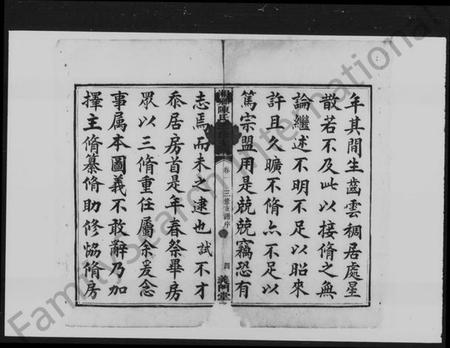 年其間生齒雲稠居處星
散若不及此以接脩之無
論繼述不明不足以昭來
許且久曠不脩亦不足以
篤宗盟用是兢兢竊恐有
陳氏
卷一
三脩宗譜序
四
義門堂
志焉而未之逮也試不才
忝居房首是年春祭畢房
眾以三脩重任屬余爰念
事属本圖義不敢辭乃加
擇主脩纂脩助脩恊脩房
FamilySearch International